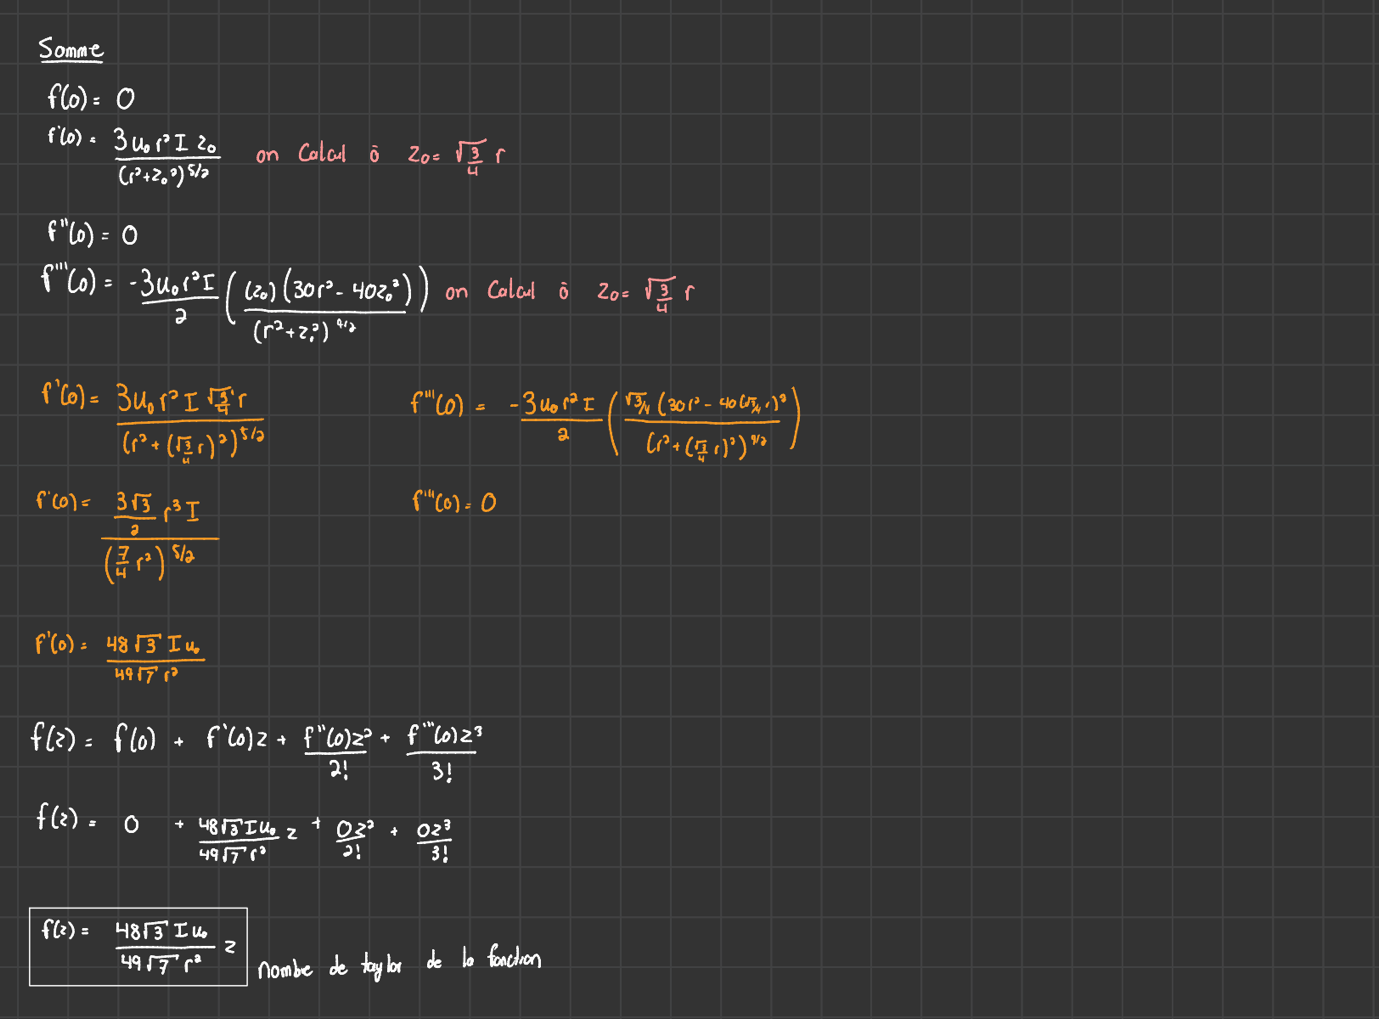 Somme
f(0) = 0
f'(0) = 3u₀r²I z₀ / (r²+z₀²)^5/2 on Calcul à z₀= √3/4 r
f''(0) = 0
f'''(0) = -3u₀r²I / 2 ( (z₀)(30r² - 40z₀²) / (r²+z₀²)^9/2 ) on Calcul à z₀= √3/4 r
f'(0) = 3u₀r²I √3/4 r / (r² + (√3/4 r)²)^5/2 f'''(0) = -3u₀r²I / 2 ( √3/4 (30r² - 40(√3/4 r)² / (r² + (√3/4 r)²)^9/2 )
f'(0) = 3√3/2 r³I / (7/4 r²)^5/2 f'''(0) = 0
f'(0) = 48√3 I u₀ / 49√7 r²
f(z) = f(0) + f'(0)z + f''(0)z² / 2! + f'''(0)z³ / 3!
f(z) = 0 + 48√3 I u₀ / 49√7 r² z + 0z² / 2! + 0z³ / 3!
f(z) = 48√3 I u₀ / 49√7 r² z nombe de taylor de la fonction